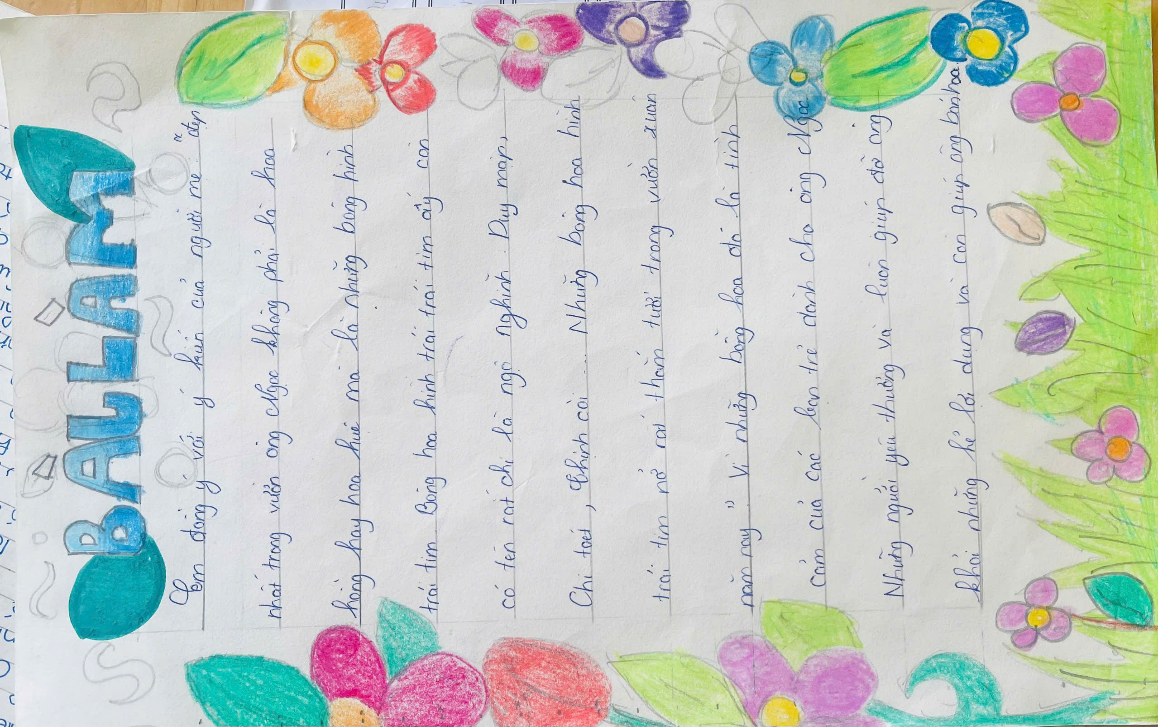 BÀI LÀM
Em đồng ý với ý kiến của người mẹ " đẹp
nhất trong vườn ông Ngọc không phải là hoa
hồng hay hoa huệ mà là những bông hình
trái tim Bông hoa hình trái trái tim ấy còn
có tên rất chi là ngộ nghĩnh : Duy mập,
Chi toét, Thịnh còi .... Những bông hoa hình
trái tim nở rất thắm tười trong vườn xuân
năm nay " Vì những bông hoa đó là tình
cảm của các bạn trẻ dành cho ông Ngọc
Những người yêu thương và luôn giúp đỡ ông
khỏi những kẻ lợi dụng và còn giúp ông bán hoa